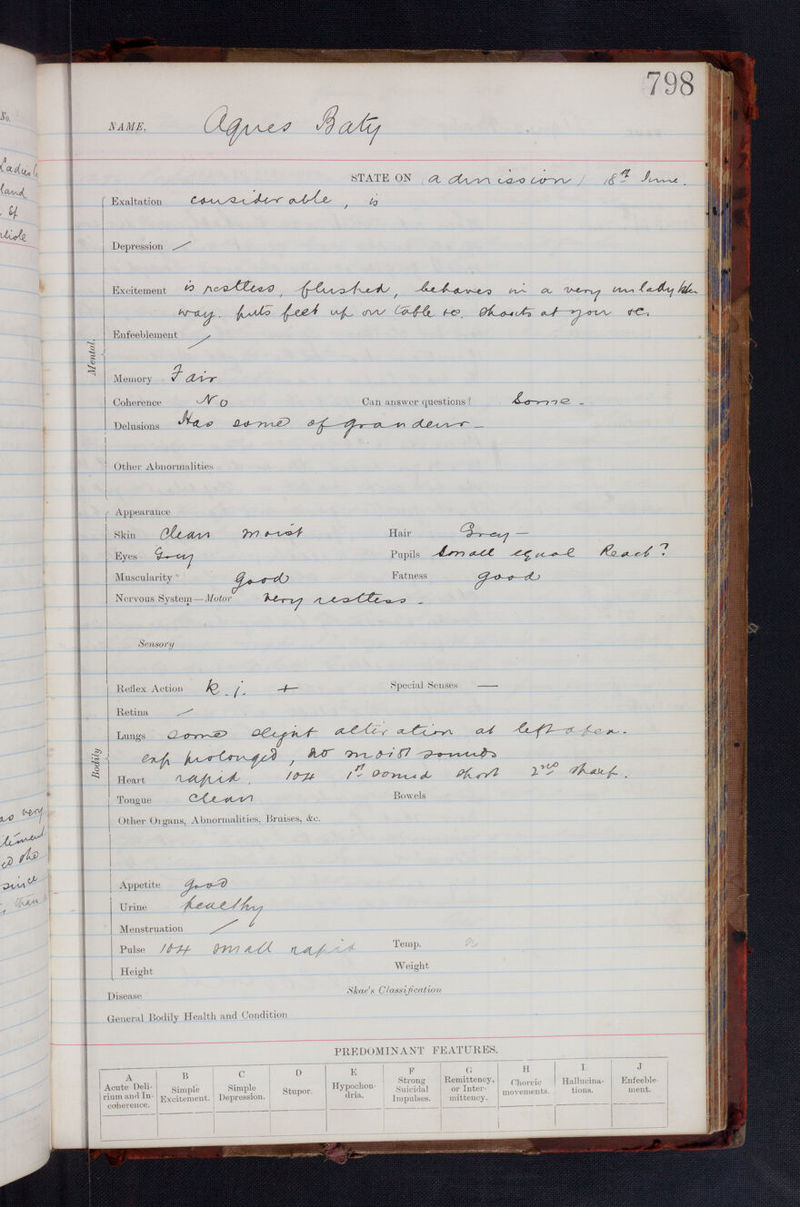 798
NAME. Agnes Baty
STATE ON admission 18th June.
Exaltation considerable, is
Depression /
Excitement is restless, flushed, behaves in a very unladylike
way. puts feet up on table &c. Shouts at you &c.
Enfeeblement /
Mental.
Memory Fair
Coherence No Can answer questions? Some -
Delusions Has some of grandeur -
Other Abnormalities
Appearance
Skin Clean moist Hair Grey -
Eyes Grey Pupils Small equal React?
Muscularity good Fatness good
Nervous System—Motor Very restless -
Sensory
Reflex Action K. j. + Special Senses —
Retina /
Lungs Some slight alteration at left apex.
exp prolonged, no moist sounds
Bodily
Heart rapid. 104 1st sound short 2nd sharp.
Tongue Clean Bowels
Other Organs, Abnormalities, Bruises, &c.
Appetite good
Urine healthy
Menstruation /
Pulse 104 small rapid Temp.
Height Weight
Disease Skae's Classification
General Bodily Health and Condition
PREDOMINANT FEATURES.
A B C D E F G H I J
Acute Delirium and Incoherence. Simple Excitement. Simple Depression. Stupor. Hypochondria. Strong Suicidal Impulses. Remittency, or Intermittency. Choreic movements. Hallucinations. Enfeeblement.
No.
land
as very
since